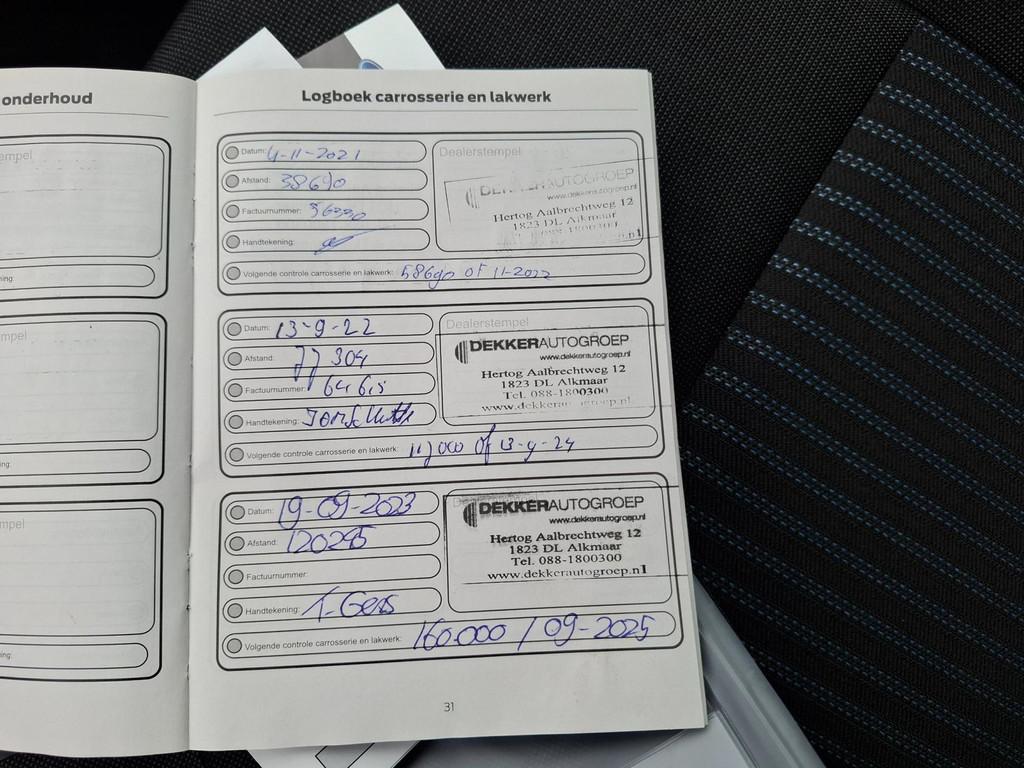 onderhoud
empel
ing:
empel
ng:
mpel
ing:
Logboek carrosserie en lakwerk
Datum: 4-11-2021
Afstand: 38690
Factuurnummer:
Handtekening:
Volgende controle carrosserie en lakwerk: 58690 of 11-2022
Dealerstempel
DEKKERAUTOGROEP
www.dekkerautogroep.nl
Hertog Aalbrechtweg 12
1823 DL Alkmaar
Tel. 088-1800300
Datum: 13-9-22
Afstand: 77304
Factuurnummer:
Handtekening:
Volgende controle carrosserie en lakwerk: 117000 of 13-9-24
Dealerstempel
DEKKERAUTOGROEP
www.dekkerautogroep.nl
Hertog Aalbrechtweg 12
1823 DL Alkmaar
Tel. 088-1800300
www.dekkerautogroep.nl
Datum: 19-09-2023
Afstand: 120295
Factuurnummer:
Handtekening:
Volgende controle carrosserie en lakwerk: 160.000 / 09-2025
DEKKERAUTOGROEP
www.dekkerautogroep.nl
Hertog Aalbrechtweg 12
1823 DL Alkmaar
Tel. 088-1800300
www.dekkerautogroep.nl
31